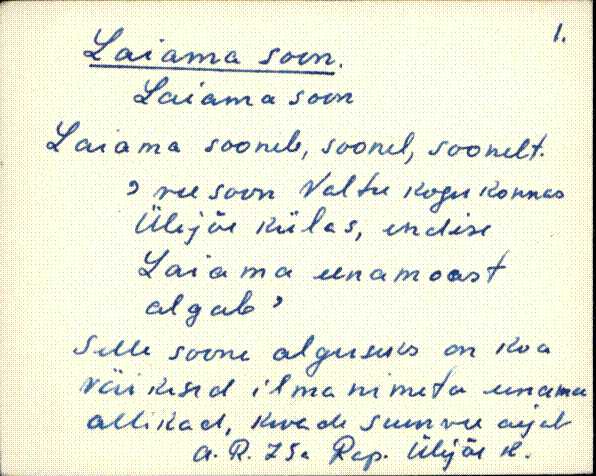 1.
Laiama soon.
Laiama soon
Laiama soonele, soonel, soonelt.
› vee soon Valtu kogukonnas
Ülejõe külas, endise
Laiama eenamaast
algab ›
Selle soone alguseks on koa
väiksed ilma nimeta eenama
allikad, suurvee ajal
A. R. 75a Rap. Ülejõe k.